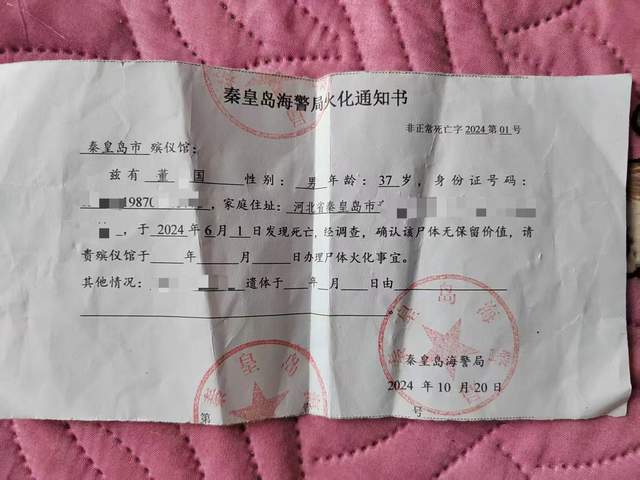 秦皇岛海警局火化通知书
非正常死亡字 2024 第 01 号
秦皇岛市 殡仪馆:
兹有 董 国 性别: 男 年龄: 37 岁, 身份证号码:
1987 , 家庭住址: 河北省秦皇岛市
, 于 2024 年 6 月 1 日发现死亡, 经调查, 确认该尸体无保留价值, 请
贵殡仪馆于 年 月 日办理尸体火化事宜。
其他情况: 遗体于 年 月 日由
。
秦皇岛海警局
2024 年 10 月 20 日
第 号